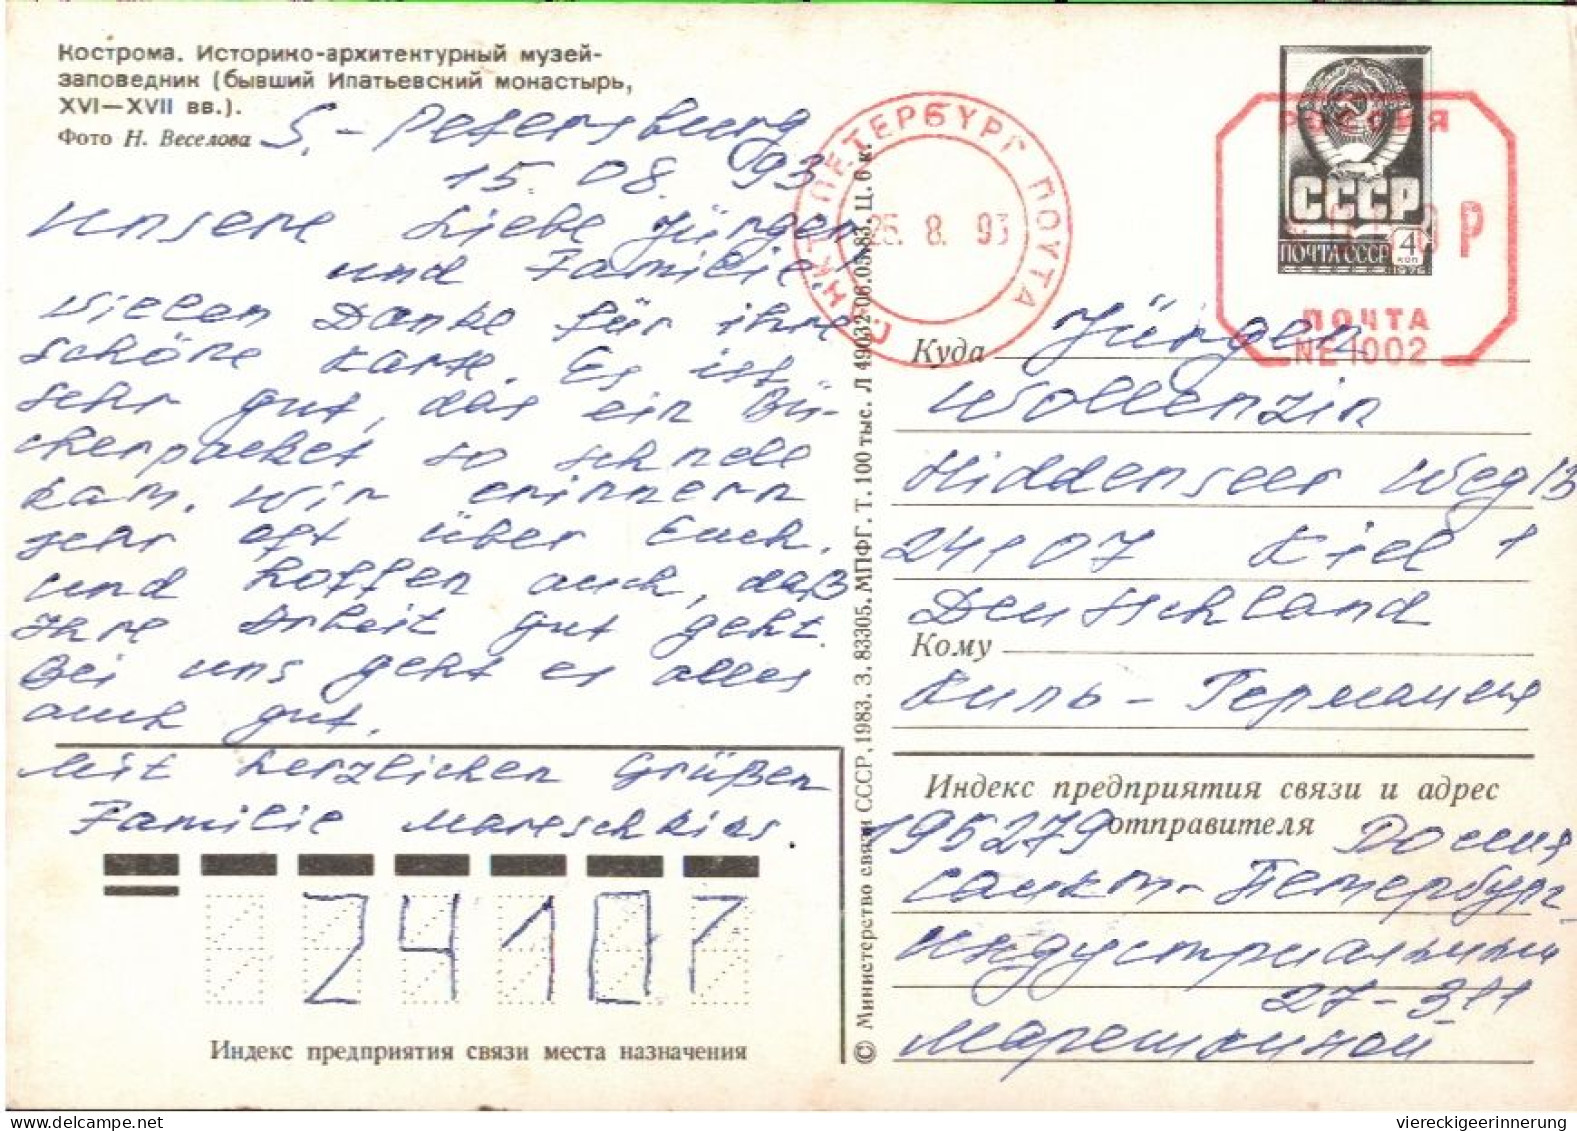 Кострома. Историко-архитектурный музей-
заповедник (бывший Ипатьевский монастырь,
XVI—XVII вв.).
Фото Н. Веселова
S.-Petersburg
15. 08. 93
Unsere Liebe Jürgen
und Familie!
Vielen Danke für ihre
schöne Karte. Es ist
sehr gut, das ein Bü-
cherpacket so schnell
kam. Wir erinnern
sehr oft über Euch.
und hoffen auch, daß
Ihre Arbeit gut geht.
Bei uns geht es alles
auch gut.
Mit herzlichen Grüßen
Familie
24107
Индекс предприятия связи места назначения
© Министерство связи СССР, 1983. З. 83305. МПФГ. Т. 100 тыс. Л 49032 06.05.83. Ц. 6 к.
САНКТ-ПЕТЕРБУРГ ПОЧТА
25. 8. 93
РОССИЯ
СССР
ПОЧТА СССР 4 коп
1976
ПОЧТА
NE 1002
Куда Jürgen
Wollenzin
Hiddenseer Weg 13
24107 Kiel 1
Deutschland
Кому
Киль - Германия
Индекс предприятия связи и адрес
отправителя
195279 Россия
Санкт-Петербург
Индустриальный
27-311
Марешкиной
viereckigeerinnerung